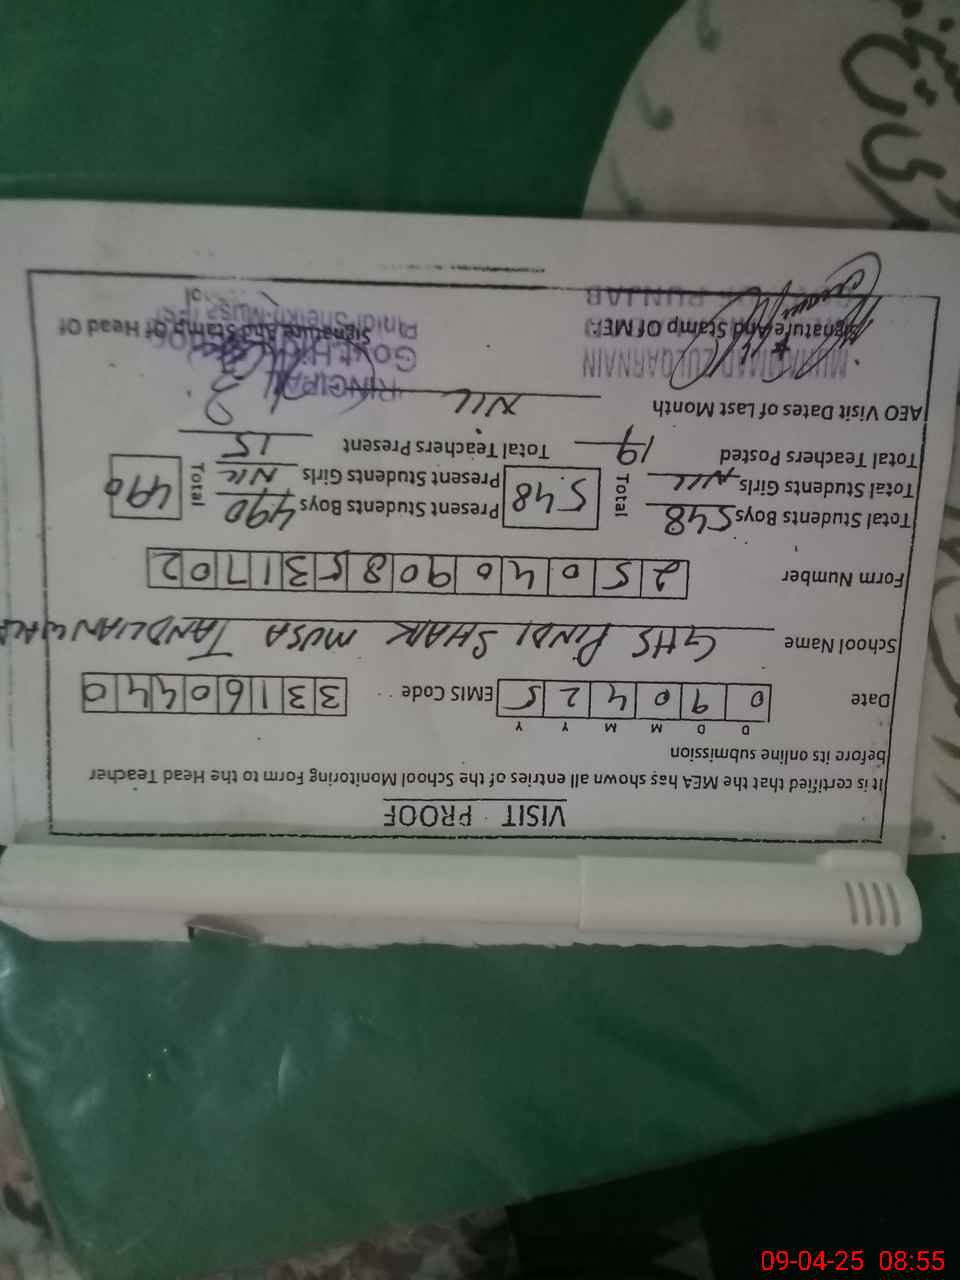 VISIT PROOF
It is certified that the MEA has shown all entries of the School Monitoring Form to the Head Teacher
before its online submission
D D M M Y Y
Date 0 9 0 4 2 5 EMIS Code 3 3 1 6 0 4 4 0
School Name GHS PINDI SHAIK MUSA TANDLIANWALA
Form Number 2 5 0 4 0 9 0 8 5 3 1 7 0 2
Total Students Boys 548 Total 548 Present Students Boys 490 Total 490
Total Students Girls NIL Present Students Girls NIL
Total Teachers Posted 19 Total Teachers Present 15
AEO Visit Dates of Last Month NIL
MUHAMMAD ZULQARNAIN
PRINCIPAL
Signature And Stamp Of MEA
Signature And Stamp Of Head Of
PUNJAB
09-04-25 08:55